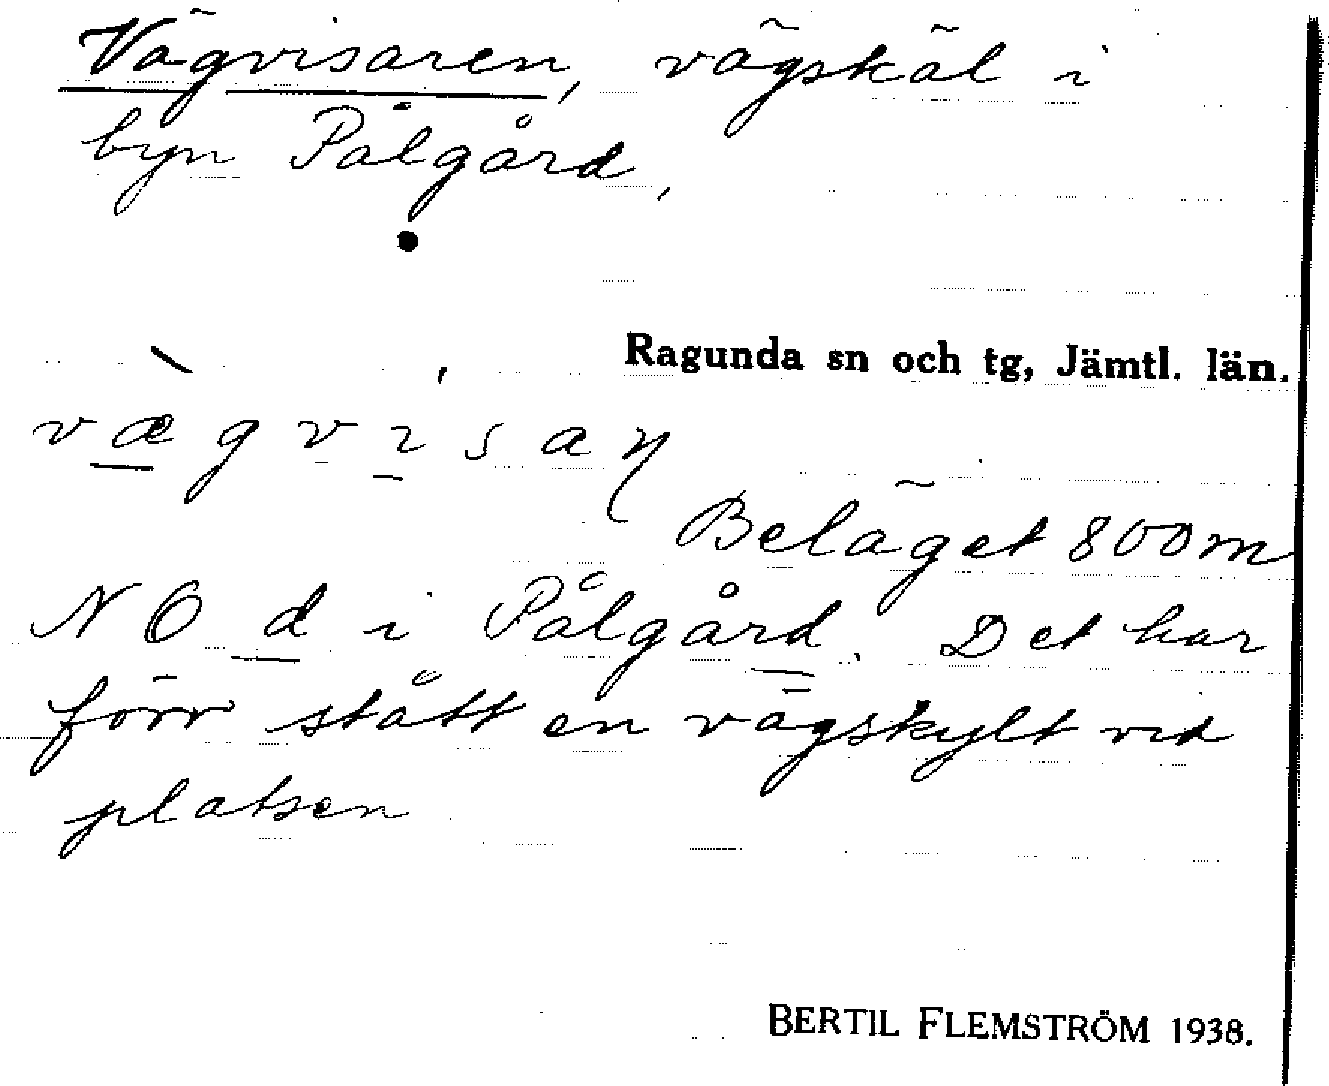 Vägvisaren, vägskäl i
byn Pålgård,
Ragunda sn och tg, Jämtl. län.
vægvisaη
Beläget 800m
NO d i Pålgård. Det har
förr stått en vägskylt vid
platsen
BERTIL FLEMSTRÖM 1938.